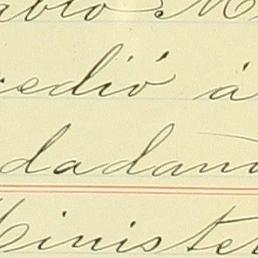 ablo M
edió á
dadano
Ministe